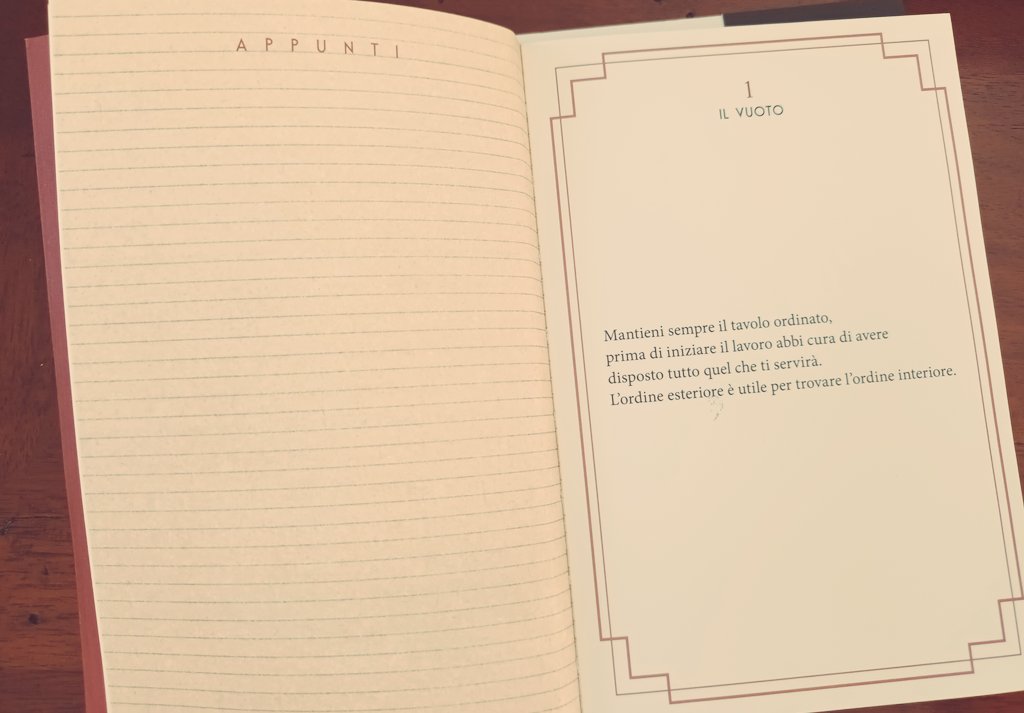 APPUNTI
1
IL VUOTO
Mantieni sempre il tavolo ordinato,
prima di iniziare il lavoro abbi cura di avere
disposto tutto quel che ti servirà.
L’ordine esteriore è utile per trovare l’ordine interiore.